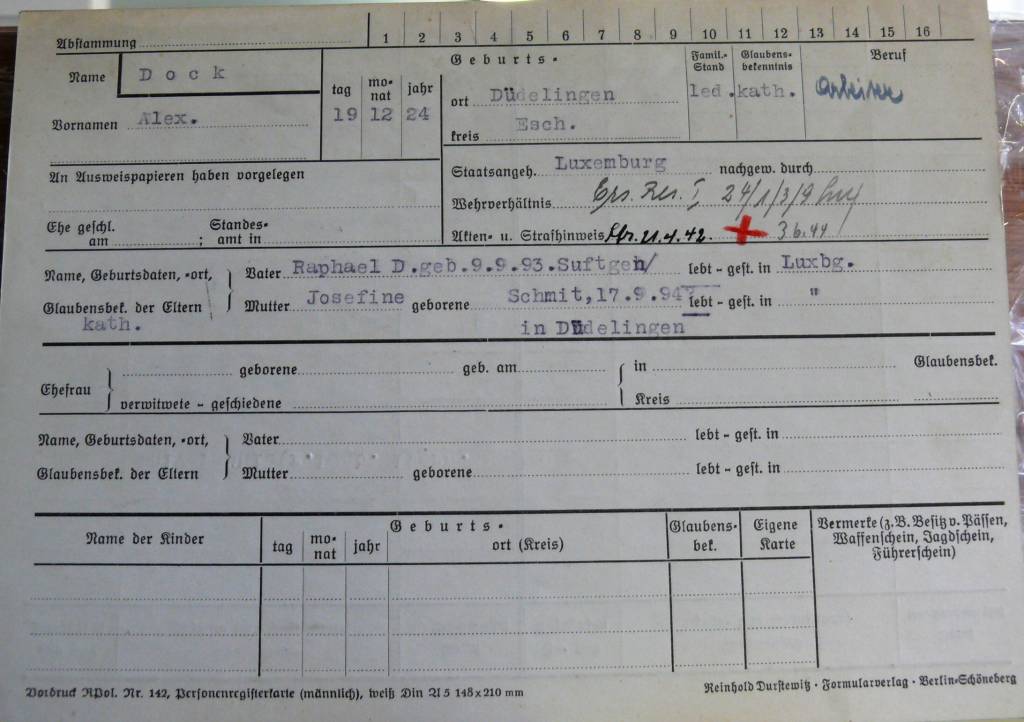 Abstammung 1 2 3 4 5 6 7 8 9 10 11 12 13 14 15 16
Name Dock
Vornamen Alex.
Geburts-
tag monat jahr
19 12 24
ort Düdelingen
kreis Esch.
Famil.-Stand
led.
Glaubensbekenntnis
kath.
Beruf
Arbeiter
An Ausweispapieren haben vorgelegen
Staatsangeh. Luxemburg nachgew. durch
Wehrverhältnis Ers. Res. I, 24/1/3/9
Ehe geschl. am ; Standesamt in
Akten- u. Strafhinweis 21.4.42. + 3.6.44
Name, Geburtsdaten, -ort, Vater Raphael D.geb.9.9.93.Suftgen/ lebt - gest. in Luxbg.
Glaubensbek. der Eltern Mutter Josefine geborene Schmit,17.9.94 lebt - gest. in "
kath. in Düdelingen
Ehefrau geborene geb. am in Glaubensbek.
verwitwete - geschiedene Kreis
Name, Geburtsdaten, -ort, Vater lebt - gest. in
Glaubensbek. der Eltern Mutter geborene lebt - gest. in
Name der Kinder
Geburts-
tag monat jahr ort (Kreis)
Glaubens-
bek.
Eigene
Karte
Vermerke (z. B. Besitz v. Pässen,
Waffenschein, Jagdschein,
Führerschein)
Vordruck RPol. Nr. 142, Personenregisterkarte (männlich), weiß Din A5 148x210 mm
Reinhold Durstewitz · Formularverlag · Berlin-Schöneberg